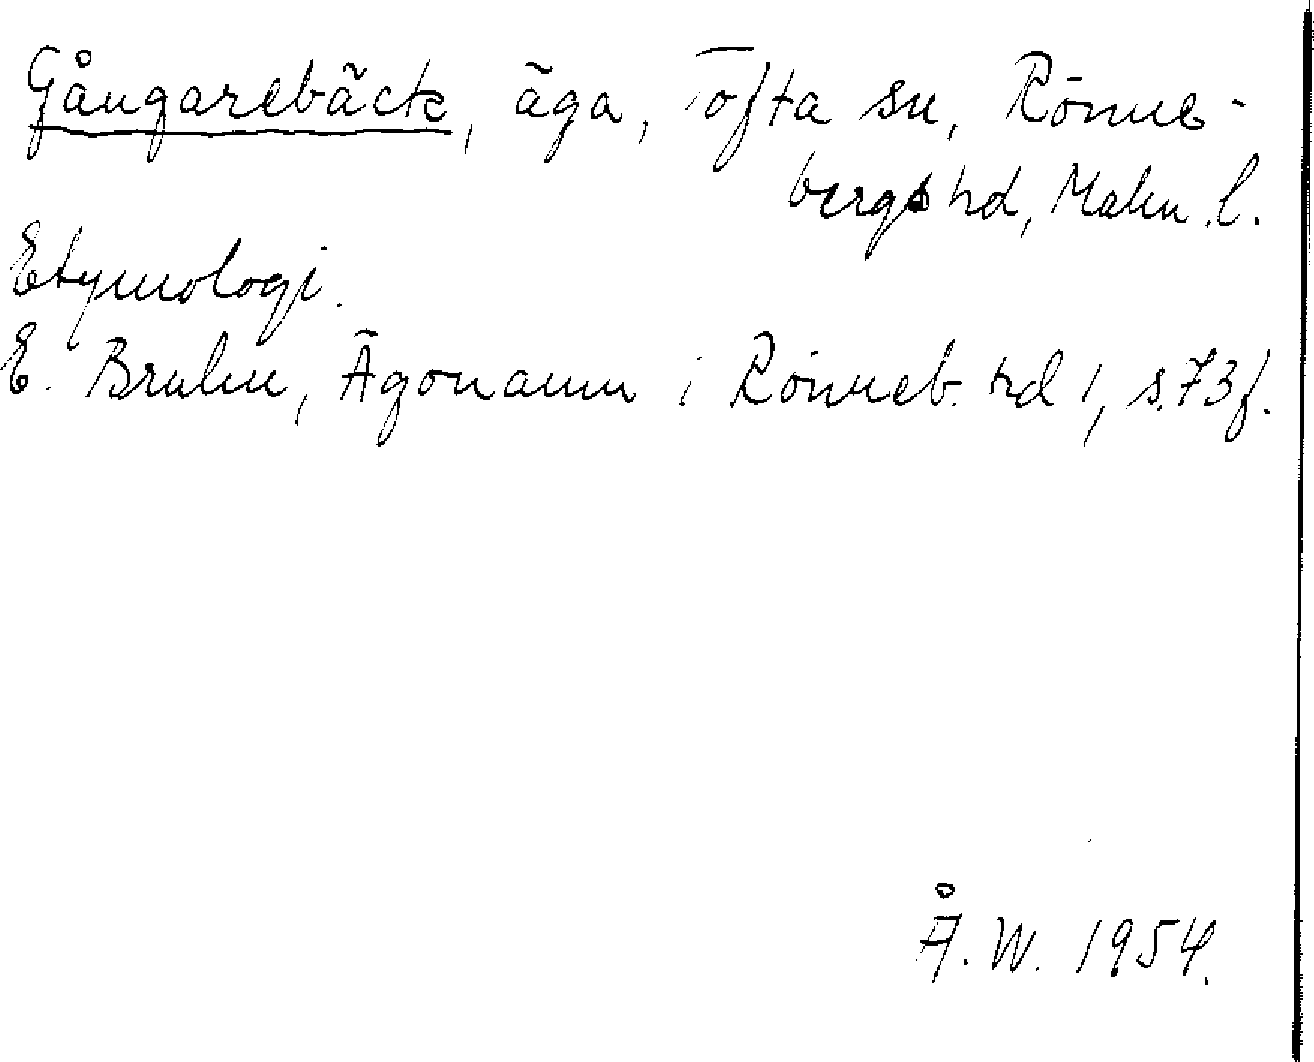 Gångarebäck, äga, Tofta sn, Rönne-
bergs hd, Malm. l.
Etymologi.
E. Bruhn, Ägonamn i Rönneb. hd 1, s. 73 f.
Å. W. 1954.